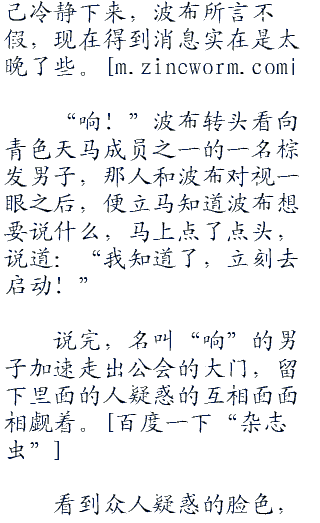 己冷静下来，波布所言不
假，现在得到消息实在是太
晚了些。[m.zincworm.com|
“响！”波布转头看向
青色天马成员之一的一名棕
发男子，那人和波布对视一
眼之后，便立马知道波布想
要说什么，马上点了点头，
说道：“我知道了，立刻去
启动！”
说完，名叫“响”的男
子加速走出公会的大门，留
下里面的人疑惑的互相面面
相觑着。[百度一下“杂志
虫”]
看到众人疑惑的脸色，